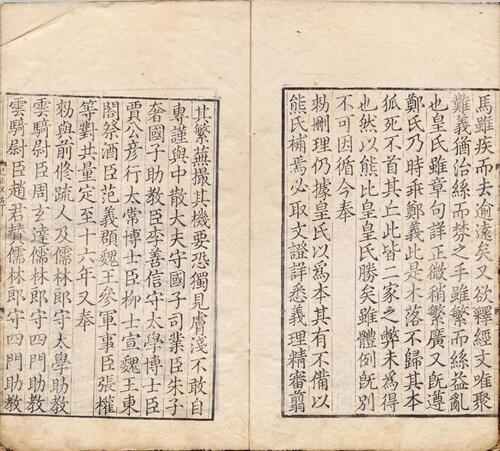 馬雖疾而去逾遠矣又欲釋經文唯聚
難義猶治絲而棼之手雖繁而絲益亂
也皇氏雖章句詳正微稍繁廣又旣遵
鄭氏乃時乖鄭義此是木落不歸其本
狐死不首其丘此皆二家之弊未爲得
也然以熊比皇皇氏勝矣雖體例旣別
不可因循今奉
勑刪理仍據皇氏以爲本其有不備以
熊氏補焉必取文證詳悉義理精審翦
其繁蕪撮其機要恐獨見膚淺不敢自
專謹與中散大夫守國子司業臣朱子
奢國子助敎臣李善信守太學博士臣
賈公彦行太常博士臣柳士宣魏王東
閤祭酒臣范義頵魏王參軍事臣張權
等對共量定至十六年又奉
勑與前修疏人及儒林郎守太學助敎
雲騎尉臣周玄達儒林郎守四門助敎
雲騎尉臣趙君贊儒林郎守四門助敎